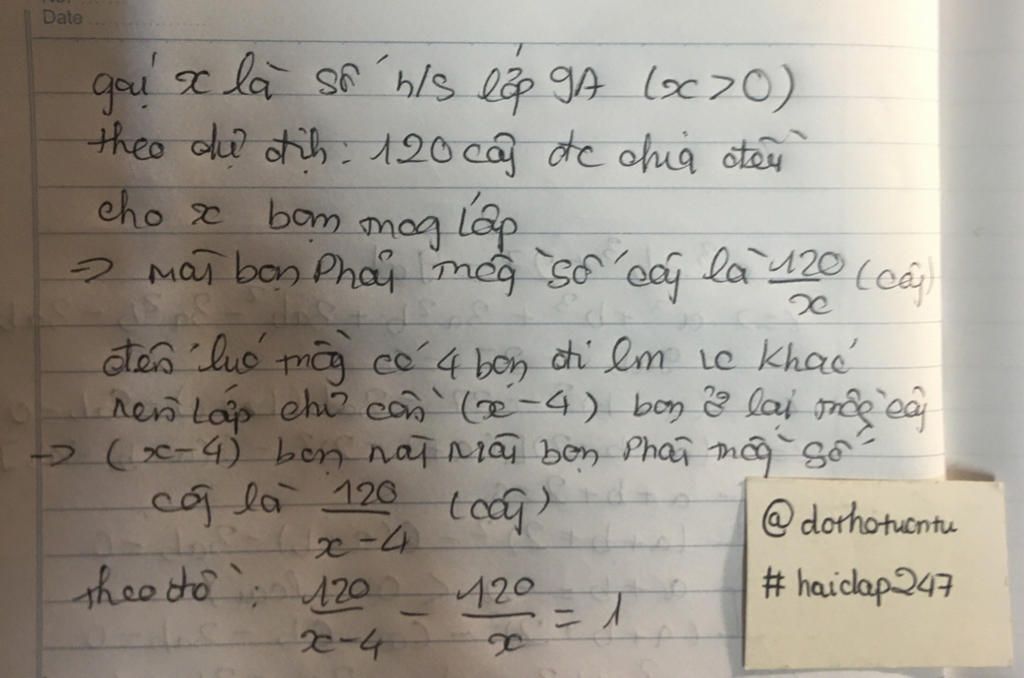 Date
gọi x là số h/s lớp 9A (x>0)
theo dự định: 120 cây đc chia đều
cho x bạn trog lớp
=> Mỗi bạn phải trồg số cây là 120/x (cây)
đến lúc trồg có 4 bạn đi làm vc khác
nên lớp chỉ còn (x-4) bạn ở lại trồg cây
-> (x-4) bạn này mỗi bạn phải trồg số
cây là 120/x-4 (cây)
theo đề: 120/x-4 - 120/x = 1
@dothotuantu
# haidap247